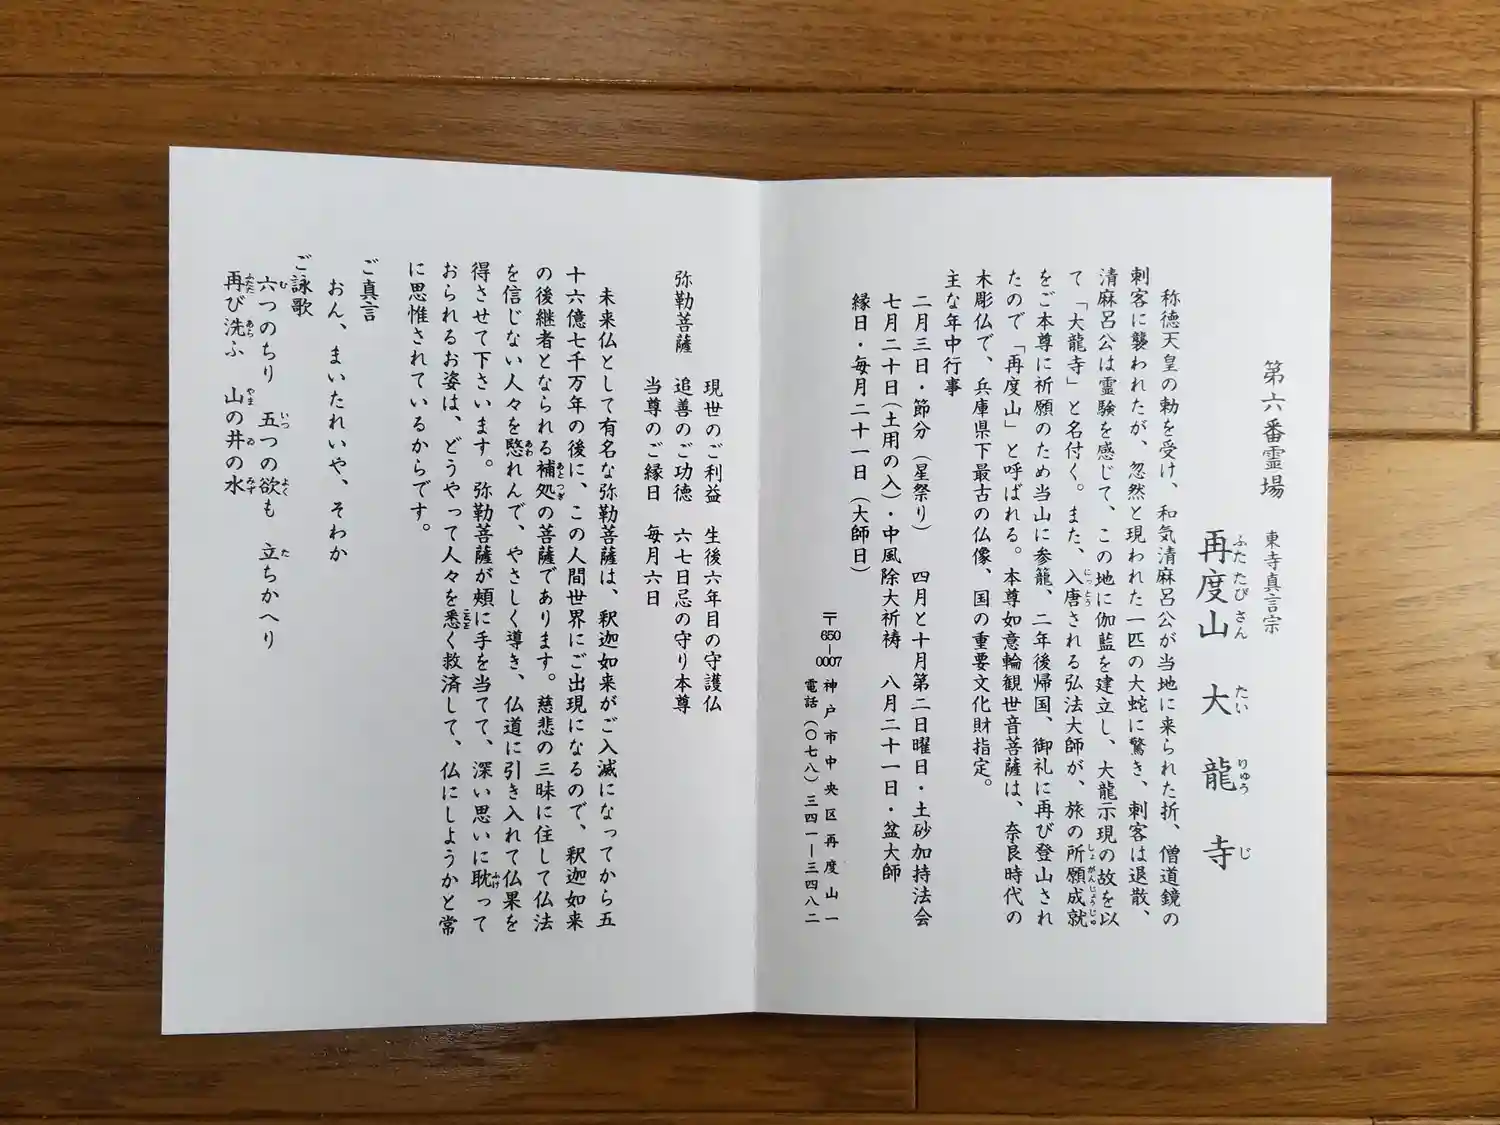 第六番霊場
東寺真言宗
再度山 大龍寺
ふたたびさん たいりゅうじ
称徳天皇の勅を受け、和気清麻呂公が当地に来られた折、僧道鏡の
刺客に襲われたが、忽然と現われた一匹の大蛇に驚き、刺客は退散、
清麻呂公は霊験を感じて、この地に伽藍を建立し、大龍示現の故を以
て「大龍寺」と名付く。また、入唐される弘法大師が、旅の所願成就
にっとう しょがんじょうじゅ
をご本尊に祈願のため当山に参籠、二年後帰国、御礼に再び登山され
たので「再度山」と呼ばれる。本尊如意輪観世音菩薩は、奈良時代の
木彫仏で、兵庫県下最古の仏像、国の重要文化財指定。
主な年中行事
二月三日・節分(星祭り) 四月と十月第二日曜日・土砂加持法会
七月二十日(土用の入)・中風除大祈祷 八月二十一日・盆大師
縁日・毎月二十一日(大師日)
〒650-0007 神戸市中央区再度山一
電話(〇七八)三四一―三四八二
弥勒菩薩
現世のご利益 生後六年目の守護仏
追善のご功徳 六七日忌の守り本尊
当尊のご縁日 毎月六日
未来仏として有名な弥勒菩薩は、釈迦如来がご入滅になってから五
十六億七千万年の後に、この人間世界にご出現になるので、釈迦如来
の後継者となられる補処の菩薩であります。慈悲の三昧に住して仏法
あとつぎ
を信じない人々を愍れんで、やさしく導き、仏道に引き入れて仏果を
あわ
得させて下さいます。弥勒菩薩が頬に手を当てて、深い思いに耽って
ふけ
おられるお姿は、どうやって人々を悉く救済して、仏にしようかと常
ことごと
に思惟されているからです。
ご真言
おん、まいたれいや、そわか
ご詠歌
六つのちり 五つの欲も 立ちかへり
む いつ よく た
再び洗ふ 山の井の水
ふたた あら やま ゐ みず